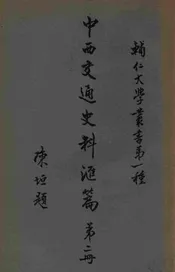 輔仁大學叢書第一種
中西交通史料滙篇 第二冊
陳垣題